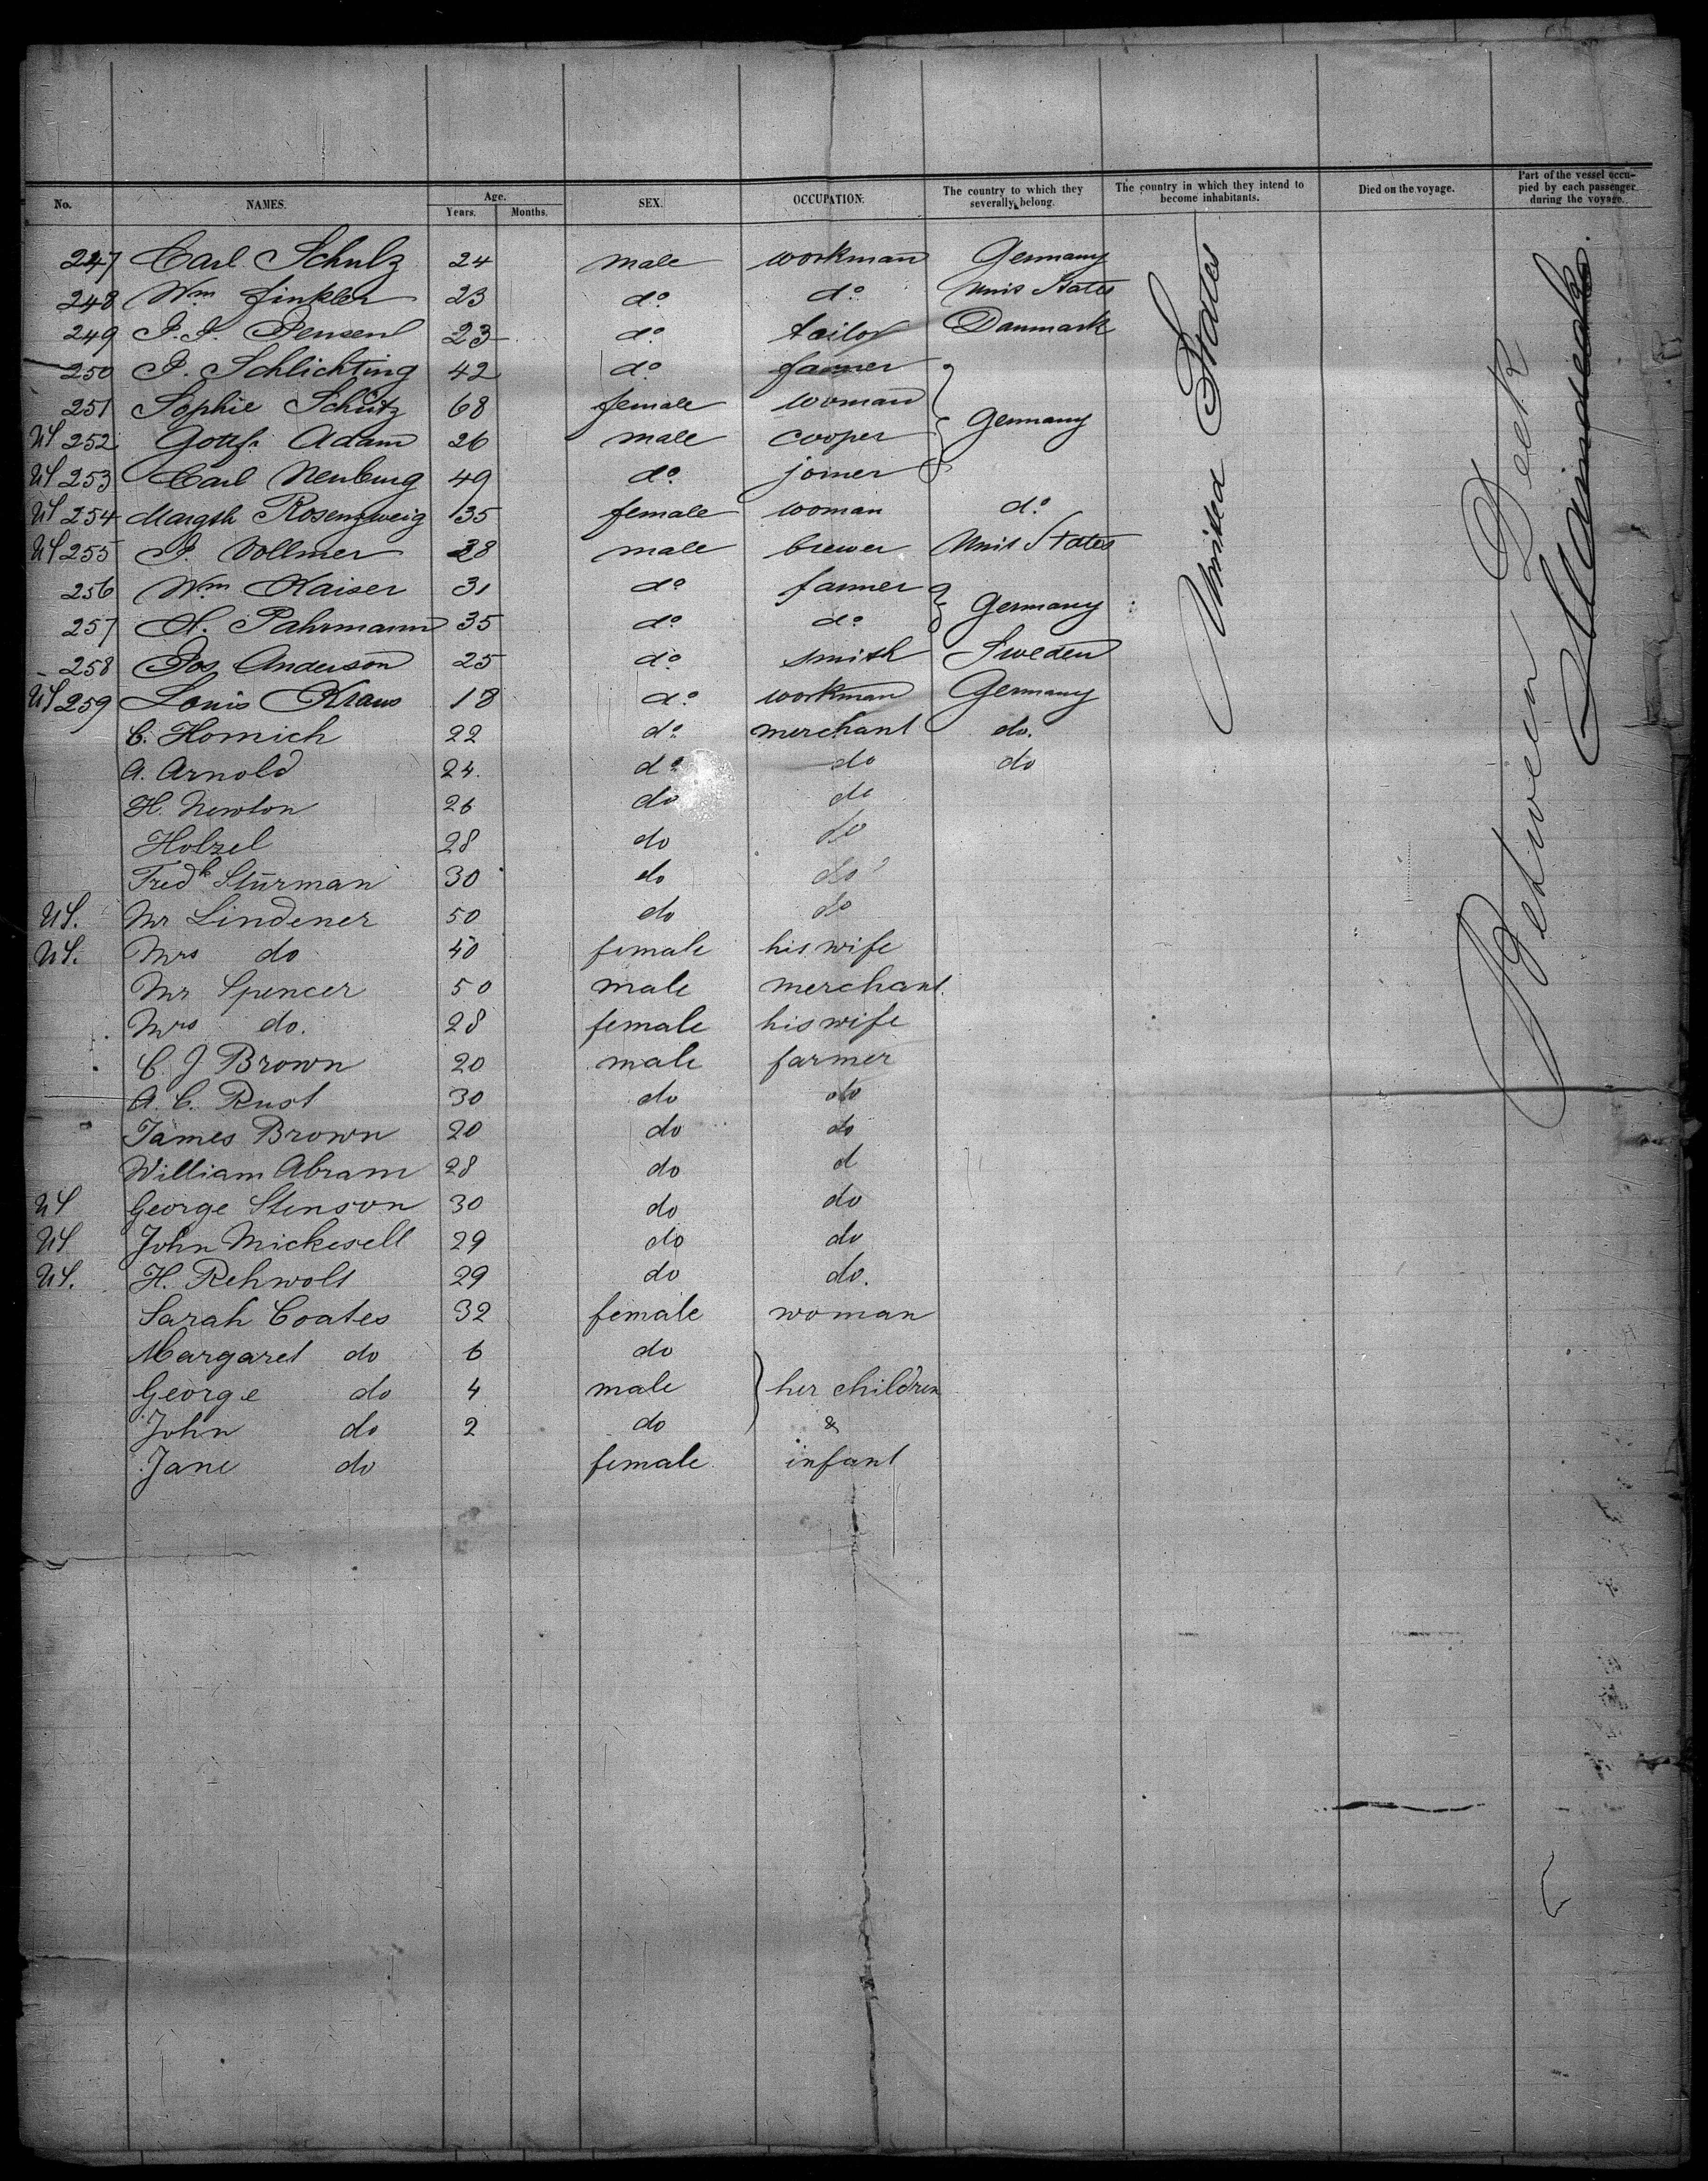 No. NAMES. Age. Years. Months. SEX. OCCUPATION. The country to which they severally belong. The country in which they intend to become inhabitants. Died on the voyage. Part of the vessel occupied by each passenger during the voyage.
247 Carl Schulz 24 male workman Germany
248 Wm Finkler 23 do do Unis States
249 P. P. Pensenl 23 do tailor Danmark
250 P. Schlichting 42 do farmer
251 Sophie Schütz 68 female woman Germany
US 252 Gottf. Adam 26 male cooper
US 253 Carl Neuburg 49 do joiner
US 254 Margth Rosenzweig 35 female woman do
US 255 P. Vollmer 38 male brewer Unis States
256 Wm Kaiser 31 do farmer Germany
257 H. Pahrmann 35 do do
258 Pos. Anderson 25 do smith Sweden
US 259 Louis Kraus 18 do workman Germany
C. Homich 22 do merchant do.
A. Arnold 24. do do do
H. Newton 26 do do
Holzel 28 do do
Fredk Stürman 30 do do
US. Mr Lindener 50 do do
US. Mrs do 40 female his wife
Mr Spencer 50 male merchant.
Mrs do. 28 female his wife
C. J Brown 20 male farmer
A. C. Rust 30 do do
James Brown 20 do do
William Abram 28 do d
US George Stenson 30 do do
US John Mickesell 29 do do
US. H. Rehwolt 29 do do.
Sarah Coates 32 female woman
Margaret do 6 do
George do 4 male her children
John do 2 do &
Jane do female infant
United States
Between Deck